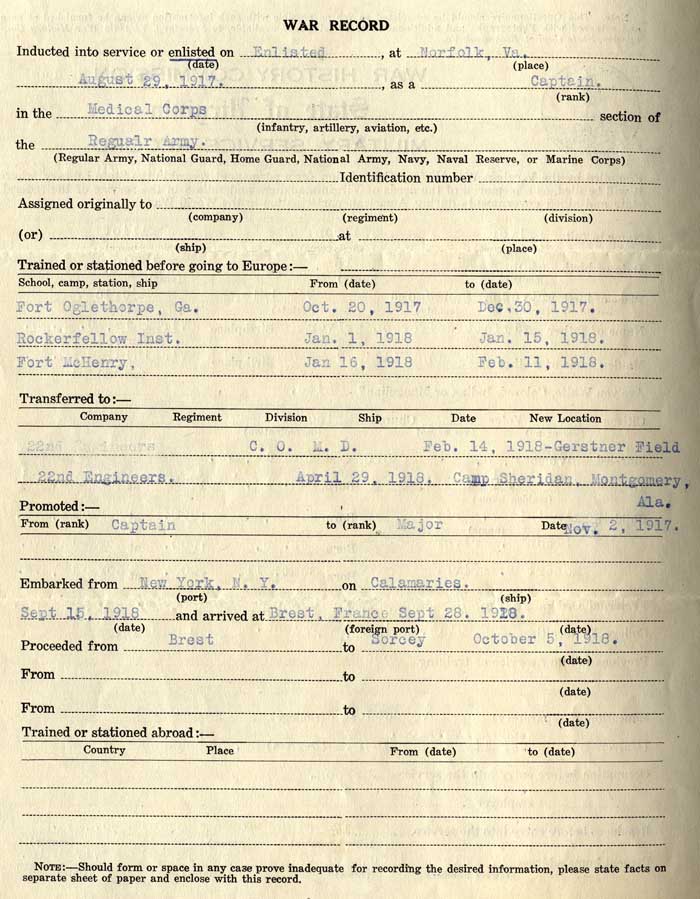 WAR RECORD
Inducted into service or enlisted on Enlisted, at Norfolk, Va.
(date) (place)
August 29, 1917., as a Captain.
(rank)
in the Medical Corps section of
(infantry, artillery, aviation, etc.)
the Regualr Army.
(Regular Army, National Guard, Home Guard, National Army, Navy, Naval Reserve, or Marine Corps)
Identification number
Assigned originally to
(company) (regiment) (division)
(or) at
(ship) (place)
Trained or stationed before going to Europe:—
School, camp, station, ship From (date) to (date)
Fort Oglethorpe, Ga. Oct. 20, 1917 Dec.30, 1917.
Rockerfellow Inst. Jan. 1, 1918 Jan. 15, 1918.
Fort McHenry, Jan 16, 1918 Feb. 11, 1918.
Transferred to:—
Company Regiment Division Ship Date New Location
22nd Engineers C. O. M. D. Feb. 14, 1918-Gerstner Field
22nd Engineers. April 29, 1918. Camp Sheridan, Montgomery,
Ala.
Promoted:—
From (rank) Captain to (rank) Major Date Nov. 2, 1917.
Embarked from New York, N. Y. on Calamaries.
(port) (ship)
Sept 15, 1918 and arrived at Brest, France Sept 28. 1918.
(date) (foreign port) (date)
Proceeded from Brest to Sorcey October 5, 1918.
(date)
From to
(date)
From to
(date)
Trained or stationed abroad:—
Country Place From (date) to (date)
NOTE:—Should form or space in any case prove inadequate for recording the desired information, please state facts on
separate sheet of paper and enclose with this record.